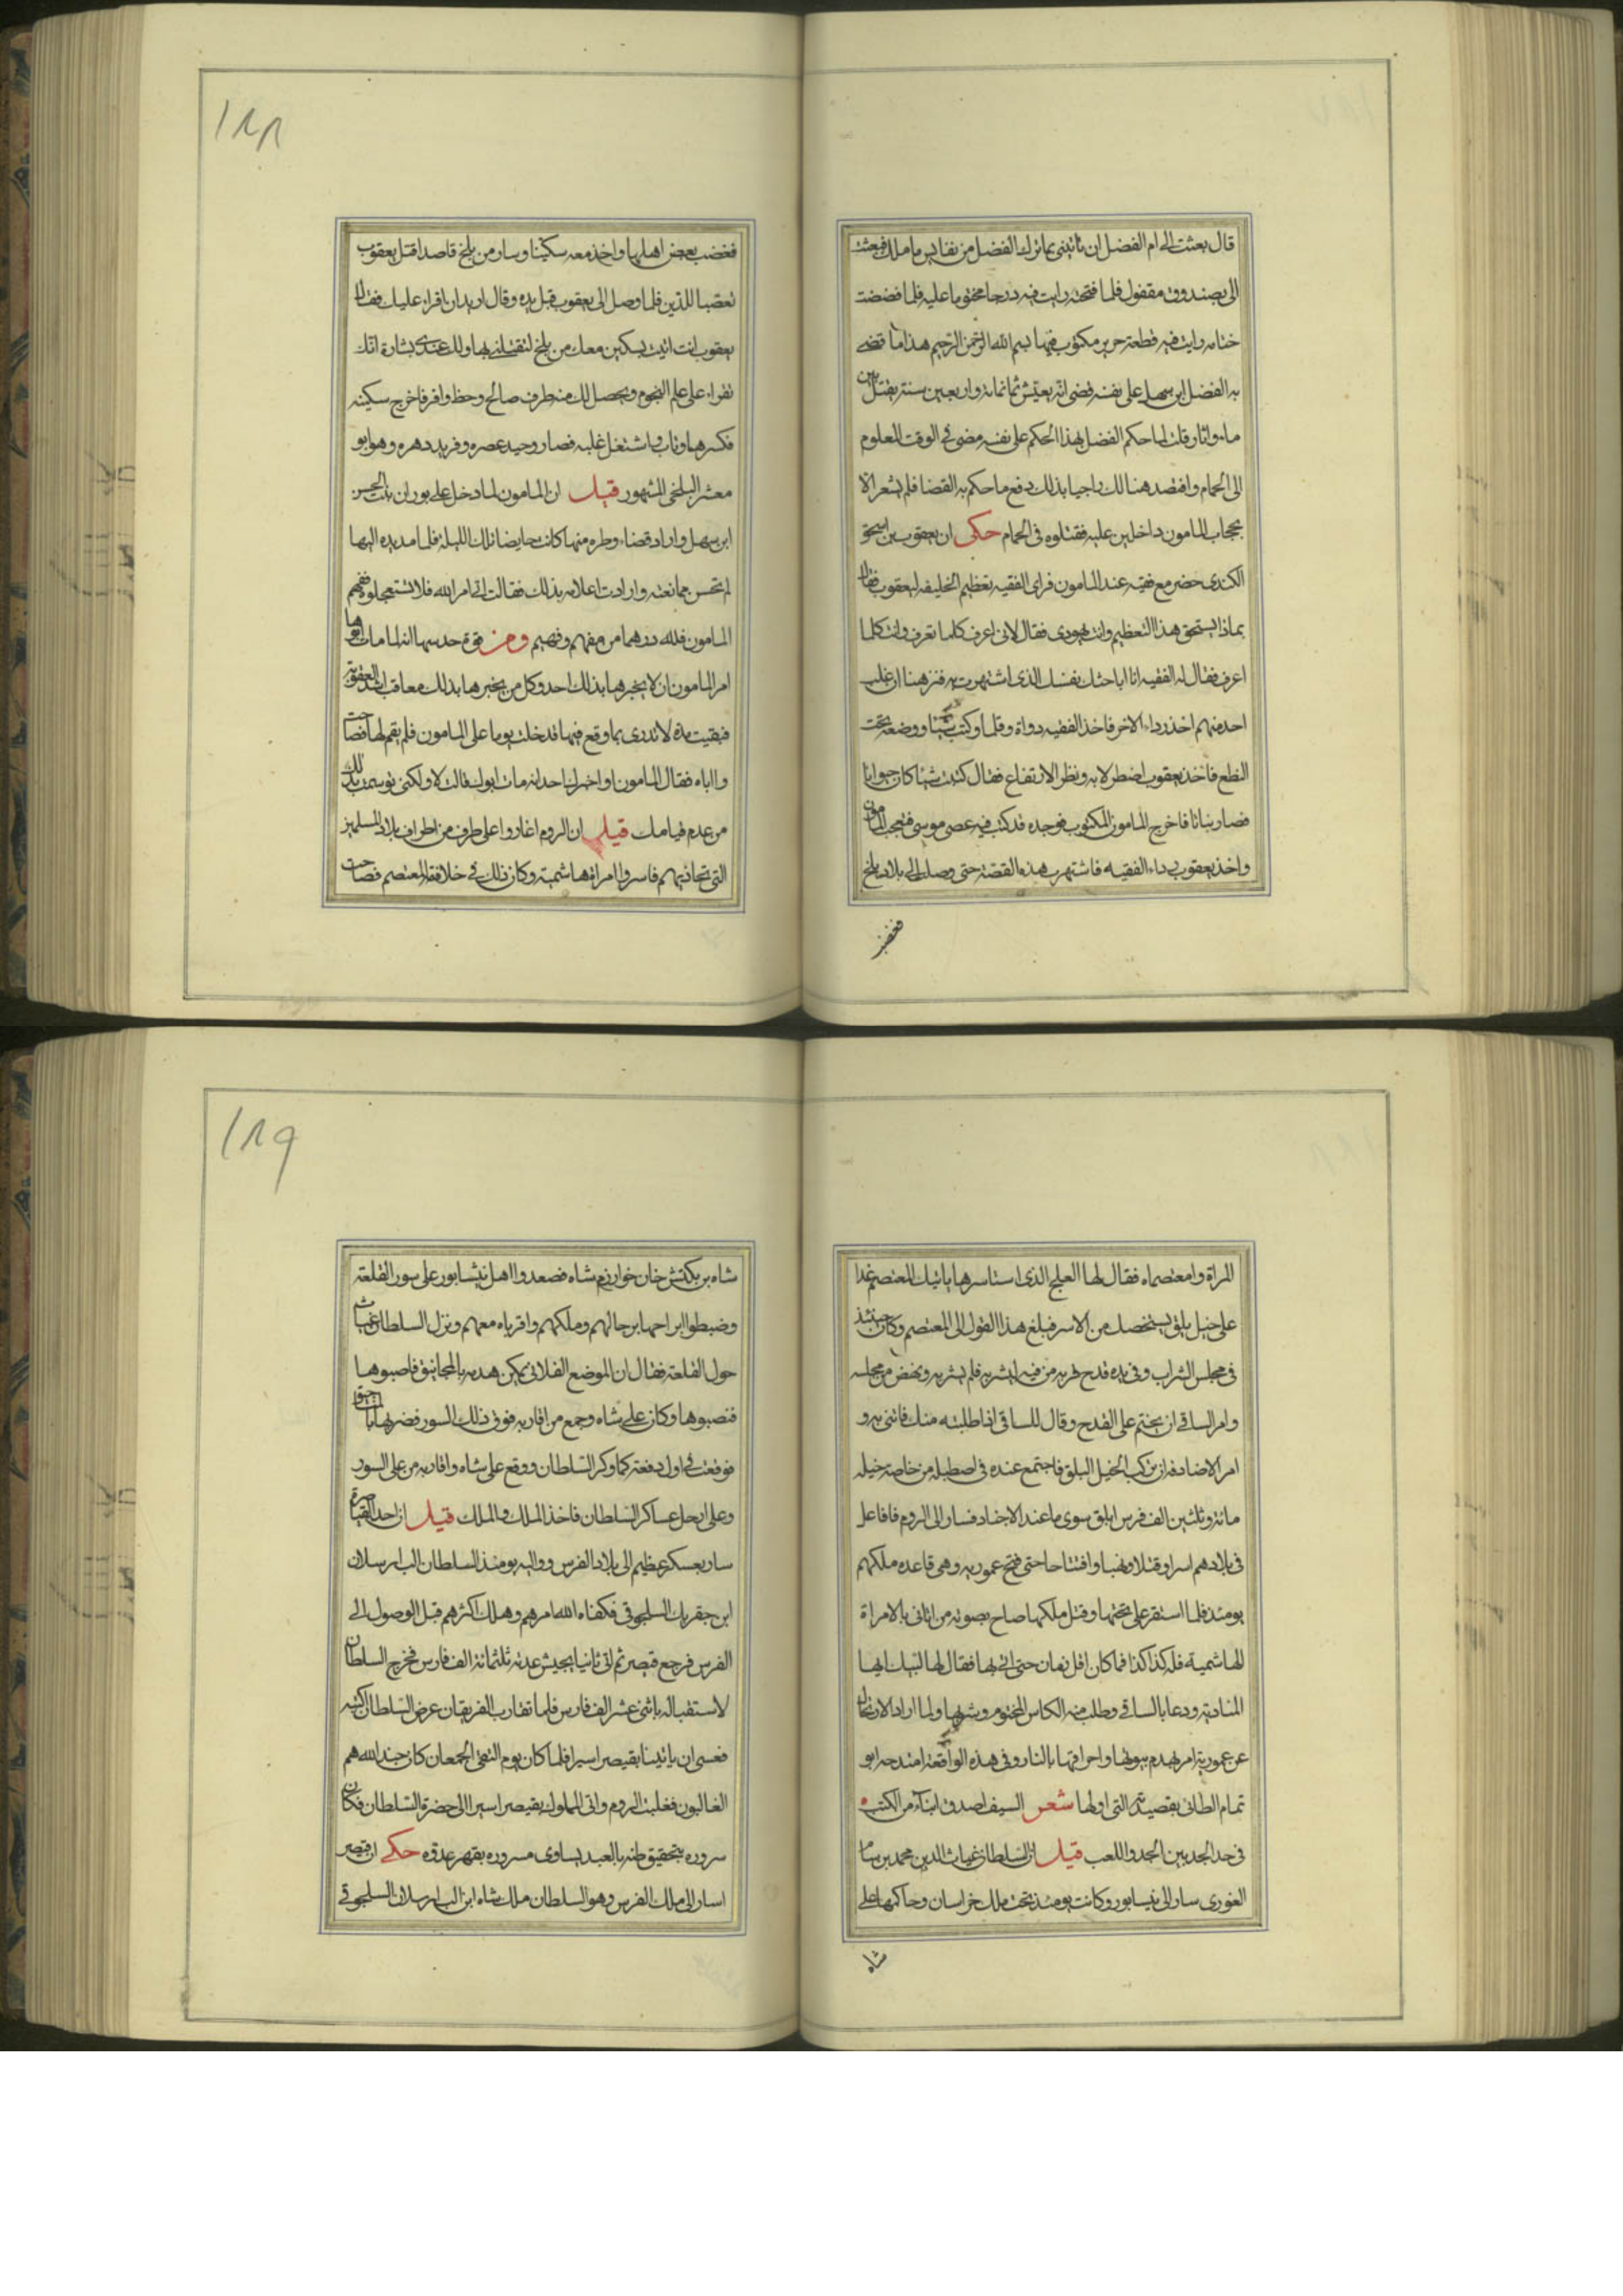 قال بعثت الى ام الفضل ان تاتينى بما ترك الفضل من نفايس ما ملك فبعثت
الى بصندوق مقفول فلما فتحته رايت فيه درجا مختوما عليه فلما فضضت
ختامه رايت فيه قطعة حرير مكتوب فيها بسم الله الرحمن الرحيم هذا ما قضى
به الفضل ابن سهل على نفسه قضى انه يعيش ثمانمائة واربعين سنة يقتل بين
ماء ونار وقلت لما حكم الفضل بهذا الحكم على نفسه مضى فى الوقت المعلوم
الى الحمام وافتصد هنالك راجيا بذلك دفع ما حكم به القضا فلم يشعر الا
بحجاب المامون داخلين عليه فقتلوه فى الحمام حكى ان يعقوب بن اسحق
الكندى حضر مع فقيه عند المامون فراى الفقيه تعظيم الخليفه ليعقوب فقال
بماذا يستحق هذا التعظيم وانت يهودى فقال لانى اعرف كلما تعرف وانت كلما
اعرف فقال له الفقيه انا اباحثك بنفسك الذى اشتهرت به فترهنا ان غلب
احد منهم اخذ رداء الاخر فاخذ الفقيه دواة وقلما وكتب شيئا ووضعه تحت
النطع فاخذ يعقوب اضطرلابه ونظر الارتفاع فقال كتبت شيئا كان حيوانا
فصار نباتا فاخرج المامون المكتوب فوجده قد كتب فيه عصى موسى فتعجب المامون
واخذ يعقوب رداء الفقيه فاشتهرت هذه القصة حتى وصلت الى بلاد بلخ
فغضب
١٨٨
فغضب بعض اهلها واخذ معه سكينا وسار من بلخ قاصدا قتل يعقوب
تعصبا للدين فلما وصل الى يعقوب قبل يده وقال اريد ان اقراء عليك فقال
يعقوب انت اتيت بسكين معك من بلخ لتقتلنى بها ولك عندى بشارة انك
تقراء على علم النجوم ويحصل لك منه طرف صالح وحظ وافر فاخرج سكينه
فكسرها وتاب واشتغل عليه فصار وحيد عصره وفريد دهره وهو ابو
معشر البلخى المشهور قيل ان المامون لما دخل على بوران بنت الحسن
ابن سهل واراد قضاء وطره منها كانت حايضا تلك الليلة فلما مد يده اليها
لم تحسن ممانعته وارادت اعلامه بذلك فقالت اتى امر الله فلا تستعجلوه ففهم
المامون فلله درهما من مفهم وفهيم ومن قوة حدسها انه لما مات ابوها
امر المامون ان لا يخبرها بذلك احد وكل من يخبرها بذلك معاقب اشد العقوبة
فبقيت مدة لا تدرى بما وقع فيها فدخلت يوما على المامون فلم يقم لها فصاحت
واأباه فقال المامون او اخبرك احد انه مات ابوك قالت لا ولكنى توسمت ذلك
من عدم قيامك قيل ان الروم اغاروا على طرف من اطراف بلاد المسلمين
التى تحاذيهم فاسروا امراة هاشمية وكان ذلك فى خلافة المعتصم فصاحت
المراة وامعتصماه فقال لها العلج الذى استاسرها ياتيك المعتصم غدا
على خيل بلق يستخصك من الاسر فبلغ هذا القول الى المعتصم وكان حينئذ
فى مجلس الشراب وفى يده قدح قربه من فيه ليشربه فلم يشربه ونهض من مجلسه
وامر الساقى ان يختم على القدح وقال للساقى اذا طلبته منك فاتنى به و
امر الاجناد فى ان تركب الخيل البلق فاجتمع عنده فى اصطبله من خاصة خيله
مائة وثلثين الف فرس ابلق سوى ما عند الاجناد فسار الى الروم فافاعل
فى بلادهم اسرا وقتلا ونهبا وافتتاحا حتى فتح عموريه وهى قاعدة ملكهم
يومئذ فلما استقر على تختها وقتل ملكها صاح بصوته من اتانى بالامراة
الهاشمية فله كذا كذا فما كان اقل زمان حتى اتى بها فقال لها لبيك ايها
المنادية ودعا بالساقى وطلب منه الكاس المختوم وشربها ولما اراد الارتحال
عن عمورية امر بهدم بيوتها واحراقها بالنار وفى هذه الواقعة امتدحه ابو
تمام الطائى بقصيدته التى اولها شعر السيف اصدق انباء من الكتب
فى حد الحد بين الجد واللعب قيل ان السلطان غياث الدين محمد بن سام
الغورى سار الى نيسابور وكانت يومئذ تخت ملك خراسان وحاكمها على
شاه
١٨٩
شاه بن بكتش خان خوارزم شاه فصعدوا اهل نيشابور على سور القلعة
وضبطوا ابراجها برجالهم وملكهم واقرباه معهم ونزل السلطان غياث
حول القلعة فقال ان الموضع الفلانى يمكن هدمه بالمجانيق فانصبوها
فنصبوها وكان على شاه وجمع من اقاربه فوق ذلك السور فضربها بالمنجنيق
فوقعت فى اول دفعة كما ذكر السلطان ووقع على شاه واقاربه من على السور
وعلى ارجل عساكر السلطان فاخذ الملك والملك قيل ان احد القياصرة
سار بعسكر عظيم الى بلاد الفرس وواليه يومئذ السلطان الب ارسلان
ابن جقربك السلجوقى فكفاه الله امرهم وهلك اكثرهم قبل الوصول الى
الفرس فرجع قيصر ثم اتى ثانيا بجيش عدته ثلثمائة الف فارس فخرج السلطان
لاستقباله باثنى عشر الف فارس فلما تقارب الفريقان عرض السلطان
فعسى ان ياتينا بقيصر اسيرا فلما كان يوم التقى الجمعان كان جند الله هم
الغالبون فغلبت الروم واتى المملوك بقيصر اسيرا الى حضرة السلطان فكان
سروره بتحقيق ظنه بالعبد يساوى مسروره بقهر عدوه حكى ان قيصر
اسار الى ملك الفرس وهو السلطان ملك شاه ابن الب ارسلان السلجوقى